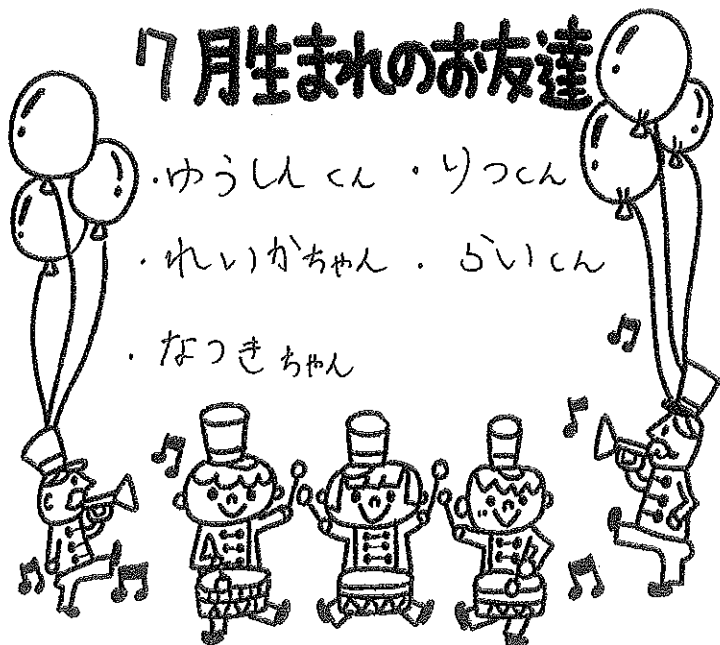 7月生まれのお友達
・ゆうしんくん ・りつくん
・れいかちゃん ・らいくん
・なつきちゃん